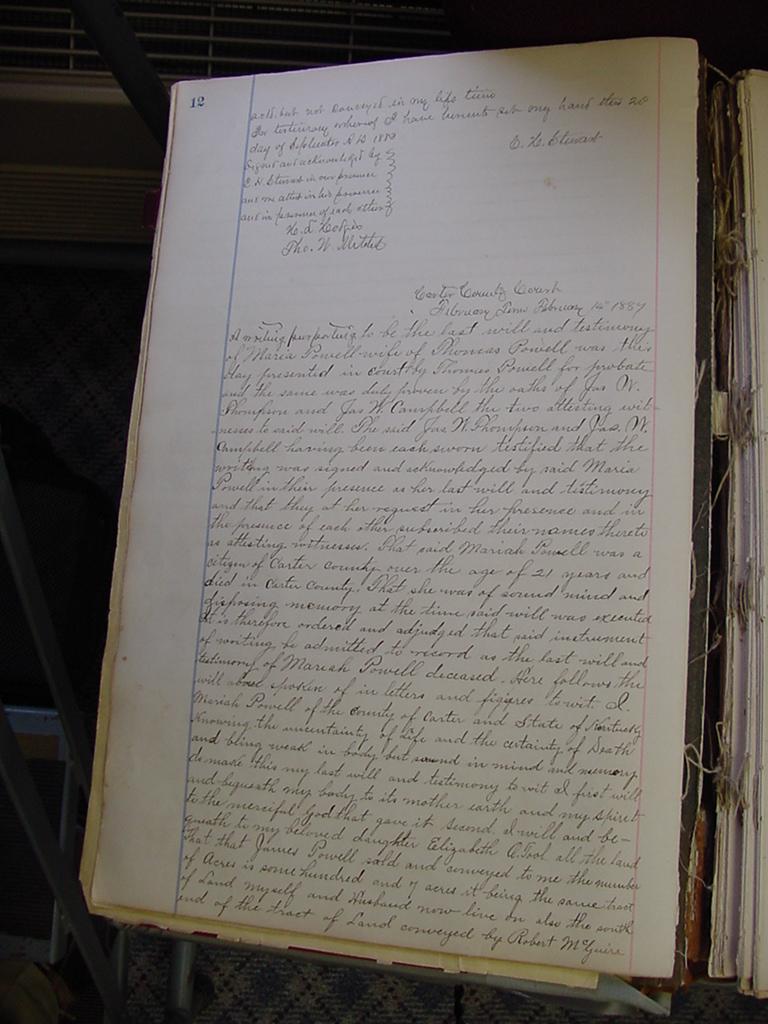 12
and but not conveyed in my life time
In testimony whereof I have hereunto set my hand this 20
day of September A D 1883
Signed and acknowledged by
E. H. Stewart in our presence
and we attest in his presence
and in presence of each other
E. H. Stewart
Tho. W. Mitchel
Carter County Court
February Term February 14th 1887
A writing purporting to be the last will and testimony
of Maria Powell wife of Thomas Powell was this
day presented in court by Thomas Powell for probate
and the same was duly proven by the oaths of Jas W.
Thompson and Jas W. Campbell the two attesting wit-
nesses to said will. The said Jas W. Thompson and Jas. W.
Campbell having been each sworn testified that the
writing was signed and acknowledged by said Maria
Powell in their presence as her last will and testimony
and that they at her request in her presence and in
the presence of each other subscribed their names thereto
as attesting witnesses. That said Mariah Powell was a
citizen of Carter county over the age of 21 years and
died in Carter County. That she was of sound mind and
disposing memory at the time said will was executed
It is therefore ordered and adjudged that said instrument
of writing be admitted to record as the last will and
testimony of Mariah Powell deceased. Here follows the
will above spoken of in letters and figures to wit I.
Mariah Powell of the county of Carter and State of Kentucky
Knowing the uncertainty of life and the certainty of Death
and being weak in body but sound in mind and memory
do make this my last will and testimony to wit I first will
and bequeath my body to its mother earth and my spirit
to the merciful God that gave it second. I will and be-
queath to my beloved daughter Elizabeth all the land
that that James Powell sold and conveyed to me the number
of Acres is some hundred and 7 acres it being the same tract
of Land myself and Husband now live on also the south
end of the tract of Land conveyed by Robert McGuire